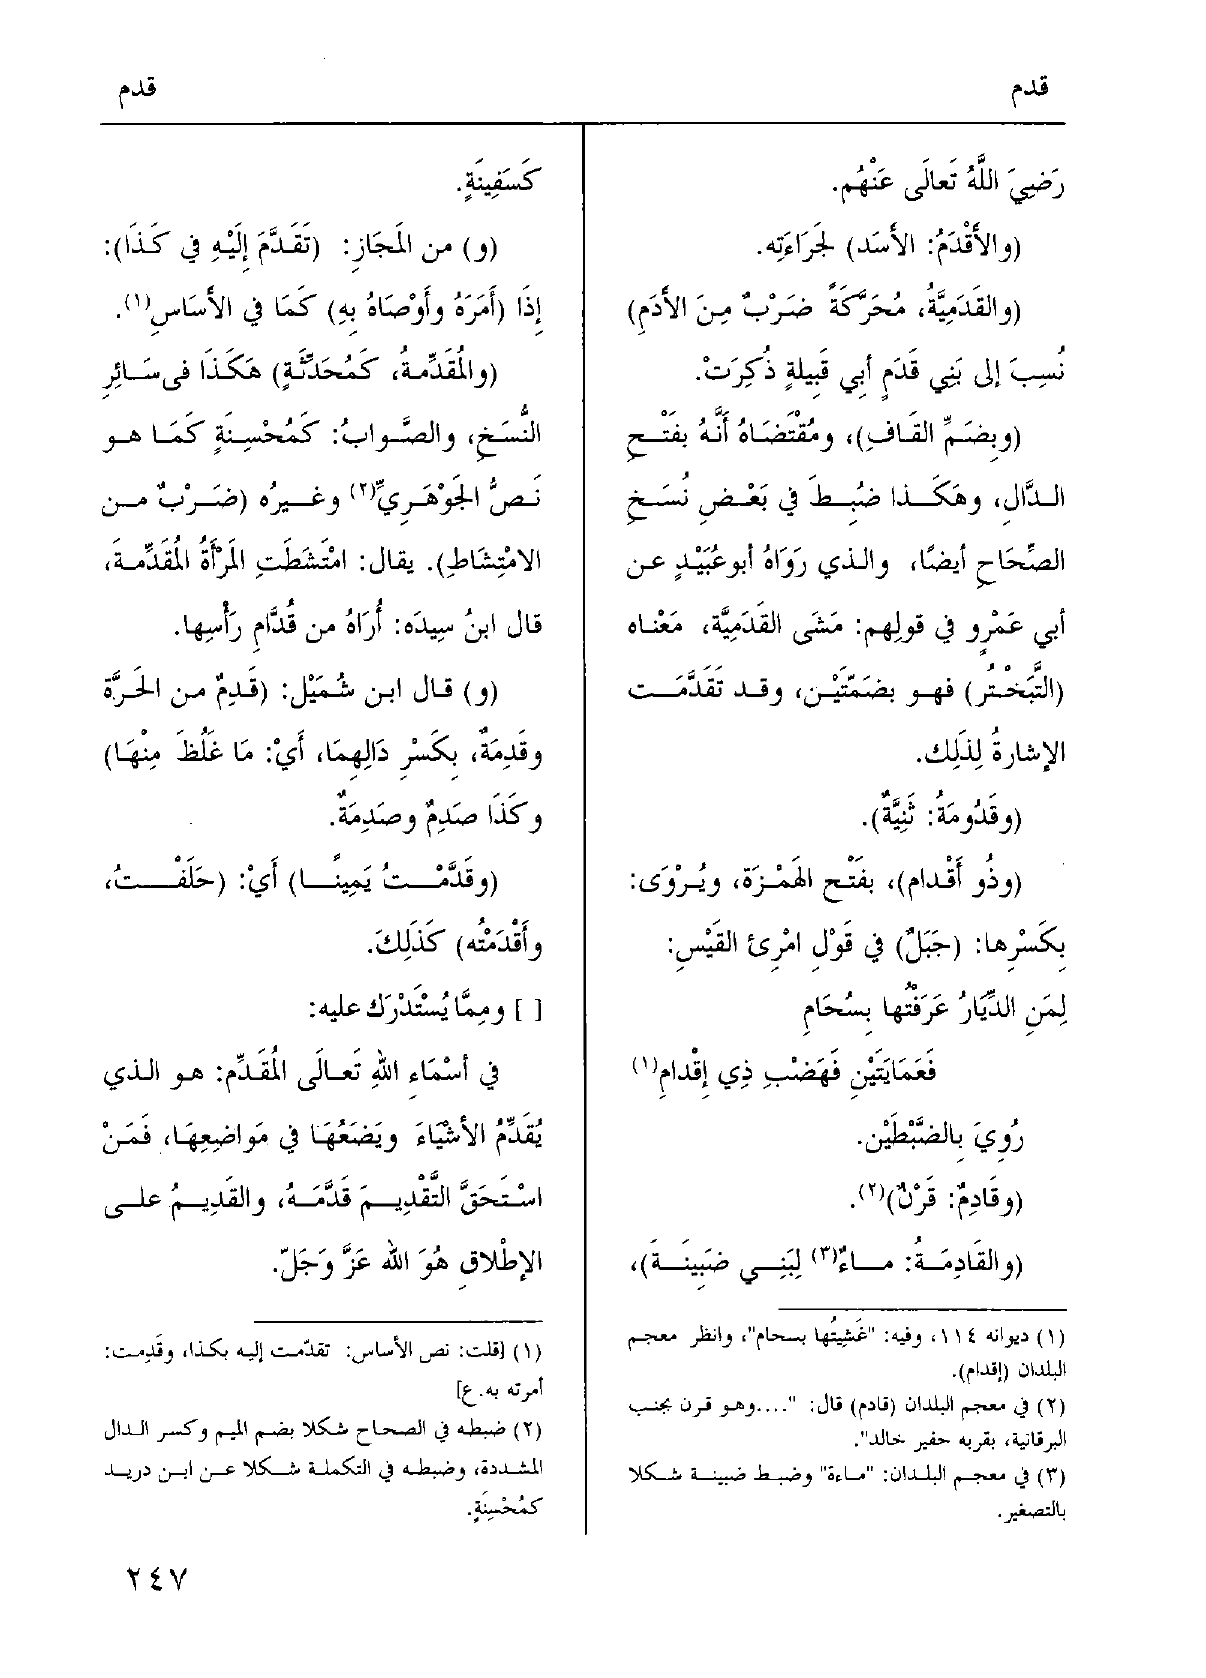 قدم
قدم
رَضِيَ اللَّهُ تَعالَى عَنْهُم.
(والأَقْدَمُ: الأَسَد) لجَراءَتِه.
(والقَدَمِيَّةُ، مُحَرَّكَةً ضَرْبٌ مِنَ الأَدَمِ)
نُسِبَ إلى بَنِي قَدَمٍ أبي قَبِيلةٍ ذُكِرَتْ.
(وبِضَمِّ القَافِ)، ومُقْتَضَاهُ أَنَّهُ بفَتْحِ
الدَّال، وهَكَذا ضُبِطَ في بَعْضِ نُسَخِ
الصِّحَاحِ أيضًا، والذي رَوَاهُ أبوعُبَيْدٍ عن
أبي عَمْرٍو في قولِهم: مَشَى القُدَمِيَّة، مَعْناه
(التَّبَخْتُرُ) فهو بضَمَّتَيْن، وقد تَقَدَّمَت
الإشارةُ لِذَلِك.
(وقَدُومَةُ: ثَنِيَّةٌ).
(وذُو أَقْدام)، بفَتْح الهَمْزة، ويُرْوَى:
بكَسْرِها: (جَبَلٌ) في قَوْلِ امْرِئ القَيْسِ:
لِمَنِ الدِّيَارُ عَرَفْتُها بِسُحَامِ
فَعَمَايَتَيْنِ فَهَضْبِ ذِي إقْدامِ(١)
رُوِيَ بالضَّبْطَيْن.
(وقَادِمٌ: قَرْنٌ)(٢).
(والقَادِمَةُ: ماءٌ(٣) لِبَنِي ضَبِينَةَ)،
(١) ديوانه ١١٤، وفيه: "غَشِيتُها بسحام"، وانظر معجم
البلدان (إقدام).
(٢) في معجم البلدان (قادم) قال: "....وهو قرن بجنب
البرقانية، بقربه حفير خالد".
(٣) في معجم البلدان: "ماءة" وضبط ضبينة شكلا
بالتصغير.
كَسَفِينَةٍ.
(و) من المَجَازِ: (تَقَدَّمَ إِلَيْهِ في كَذَا):
إِذَا (أَمَرَهُ وأَوْصَاهُ بِهِ) كَمَا في الأَسَاسِ(١).
(والمُقَدِّمةُ، كَمُحَدِّثَةٍ) هَكَذا فى سَائِرِ
النُّسَخِ، والصَّوابُ: كَمُحْسِنةٍ كَمَا هو
نَصُّ الجَوْهَرِيِّ(٢) وغَيرُه (ضَرْبٌ من
الامْتِشَاطِ). يقال: امْتَشَطَتِ المَرْأَةُ المُقَدِّمةَ،
قال ابنُ سِيدَه: أُرَاهُ من قُدَّامِ رَأْسِها.
(و) قال ابن شُمَيْل: (قَدِمٌ من الحَرَّةِ
وقَدِمَةٌ، بِكَسْرِ دَالِهِمَا، أَيْ: مَا غَلُظَ مِنْهَا)
وكَذَا صَدِمٌ وصَدِمَةٌ.
(وقَدَّمْتُ يَمِينًا) أَيْ: (حَلَفْتُ،
وأَقْدَمْتُه) كَذَلِكَ.
[ ] ومِمَّا يُسْتَدْرَك عليه:
في أَسْمَاءِ اللهِ تَعالَى المُقَدِّم: هو الذي
يُقَدِّمُ الأَشْيَاءَ ويَضَعُهَا في مَواضِعِهَا، فَمَنْ
اسْتَحَقَّ التَّقْدِيمَ قَدَّمَهُ، والقَدِيمُ على
الإطْلاقِ هُوَ الله عَزَّ وَجَلّ.
(١) [قلت: نص الأساس: تقدّمت إليه بكذا، وقدِمت:
أمرته به. ع]
(٢) ضبطه في الصحاح شكلا بضم الميم وكسر الدال
المشددة، وضبطه في التكملة شكلا عن ابن دريد
كمُحْسِنَةٍ.
٢٤٧